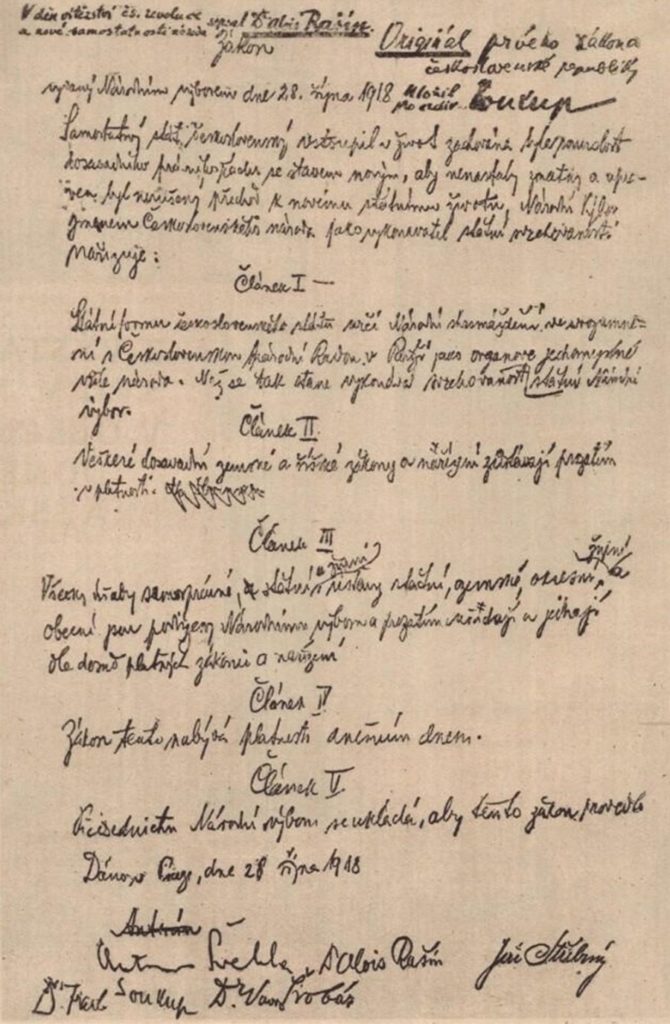 V den vítězství čs. revoluce
a nové samostatnosti národa
sepsal Dr Alois Rašín.
Originál prvého zákona
Zákon
československé republiky
vydaný Národním výborem dne 28. října 1918
uložil Soukup
Samostatný stát československý vstoupil v život zachována byla souvislost
dosavadního právního řádu se stavem novým, aby nenastaly zmatky a
byl nerušený přechod k novému státnímu životu, Národní výbor
jménem Československého národa jako vykonavatel státní svrchovanosti
nařizuje:
Článek I —
Státní formu československého státu určí Národní shromáždění ve
s Československou Národní Radou v Paříži jako orgánové jednomyslné
vůle národa. Než se tak stane vykonává svrchovanost státní Národní
výbor.
Článek II.
Veškeré dosavadní zemské a říšské zákony a nařízení zůstávají prozatím
v platnosti.
Článek III
župní
Všecky úřady samosprávné, státní ústavy státní, zemské, okresní, a
obecní jsou podřízeny Národnímu výboru a prozatím úřadují a jednají
dle dosud platných zákonů a nařízení
Článek IV
Zákon tento nabývá platnosti dnešním dnem.
Článek V
Předsednictvu Národní výboru se ukládá, aby tento zákon provedlo
Dáno v Praze, dne 28 října 1918
Antonín
Antonín Švehla Dr Alois Rašín Jiří Stříbrný
Dr. Frant Soukup Dr. Vavro Šrobár